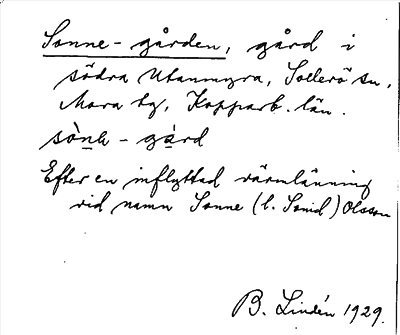 Sonne-gården, gård i
södra Utanmyra, Sollerö sn,
Mora tg, Kopparb. län.
Efter en inflyttad värmlänning
vid namn Sonne (l. Sonid) Olsson
B. Lindén 1929.